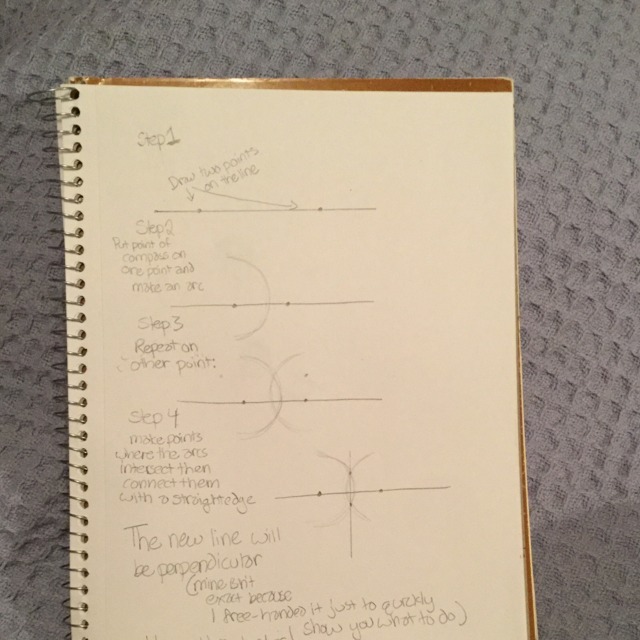 Step 1
Draw two points
on the line
Step 2
Put point of
compass on
one point and
make an arc
Step 3
Repeat on
other point.
Step 4
make points
where the arcs
intersect then
connect them
with a straightedge
The new line will
be perpendicular
(mine isnt
exact because
I free-handed it just to quickly
show you what to do)